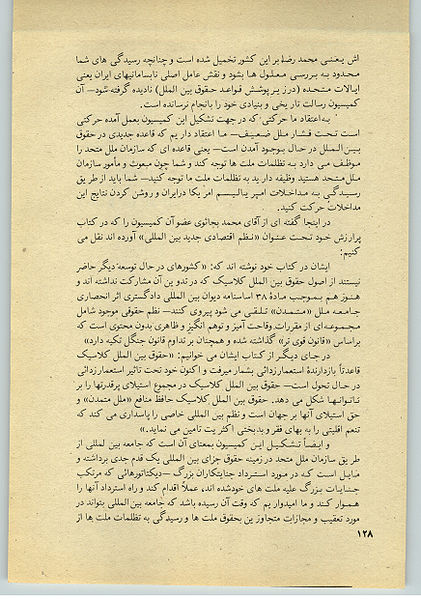 اش یعنی محمد رضا بر این کشور تحمیل شده است و چنانچه رسیدگی های شما
محدود به بررسی معلول ها بشود و نقش عامل اصلی نابسامانیهای ایران یعنی
ایالات متحده (در زیر پوشش قواعد حقوق بین الملل) نادیده گرفته شود— آن
کمیسیون رسالت تاریخی و بنیادی خود را بانجام نرسانده است.
به اعتقاد ما حرکتی که در جهت تشکیل این کمیسیون بعمل آمده حرکتی
است تحت فشار ملل ضعیف— ما اعتقاد داریم که قاعده جدیدی در حقوق
بین الملل در حال بوجود آمدن است— یعنی قاعده ای که سازمان ملل متحد را
موظف می دارد به تظلمات ملت ها توجه کند و شما چون مبعوث و مأمور سازمان
ملل متحد هستید وظیفه دارید به تظلمات ملت ما توجه کنید— شما باید از طریق
رسیدگی به مداخلات امپریالیسم امریکا در ایران و روشن کردن نتایج این
مداخلات حرکت کنید.
در اینجا گفته ای از آقای محمد بجائوی عضو آن کمیسیون را که در کتاب
پرارزش خود تحت عنوان «نظم اقتصادی جدید بین المللی» آورده اند نقل می
کنیم:
ایشان در کتاب خود نوشته اند که: «کشورهای در حال توسعه دیگر حاضر
نیستند از اصول حقوق بین الملل کلاسیک که در تدوین آن مشارکت نداشته اند و
هنوز هم بموجب مادۀ ۳۸ اساسنامه دیوان بین المللی دادگستری اثر انحصاری
جامعه ملل «متمدن» تلقی می شود پیروی کنند— نظم حقوقی موجود شامل
مجموعه ای از مقررات وقاحت آمیز و توهم انگیز و ظاهری بدون محتوی است که
براساس «قانون قوی تر» گذاشته شده و همچنان بر تداوم قانون جنگل تکیه دارد»
در جای دیگر از کتاب ایشان می خوانیم: «حقوق بین الملل کلاسیک
قاعدتاً بازدارندۀ استعمارزدائی بشمار میرفت و اکنون خود تحت تاثیر استعمارزدائی
در حال تحول است— حقوق بین الملل کلاسیک در مجموع استیلای پرقدرتها را بر
ناتوانها شکل می دهد. حقوق بین الملل کلاسیک حافظ منافع «ملل متمدن» و
حق استیلای آنها بر جهان است و نظم بین المللی خاصی را پاسداری می کند که
تنعم اقلیتی را به بهای فقر و بدبختی اکثریت تامین می نماید.»
و ایضاً تشکیل این کمیسیون بمعنای آن است که جامعه بین المللی از
طریق سازمان ملل متحد در زمینه حقوق جزای بین المللی یک قدم جدی برداشته و
مایل است که در مورد استرداد جنایتکاران بزرگ —دیکتاتورهائی که مرتکب
جنایات بزرگ علیه ملت های خودشده اند، عملاً اقدام کند و راه استرداد آنها را
هموار کند و ما امیدواریم که وقت آن رسیده باشد که جامعه بین المللی بتواند در
مورد تعقیب و مجازات متجاوزین بحقوق ملت ها و رسیدگی به تظلمات ملت ها از
۱۲۸